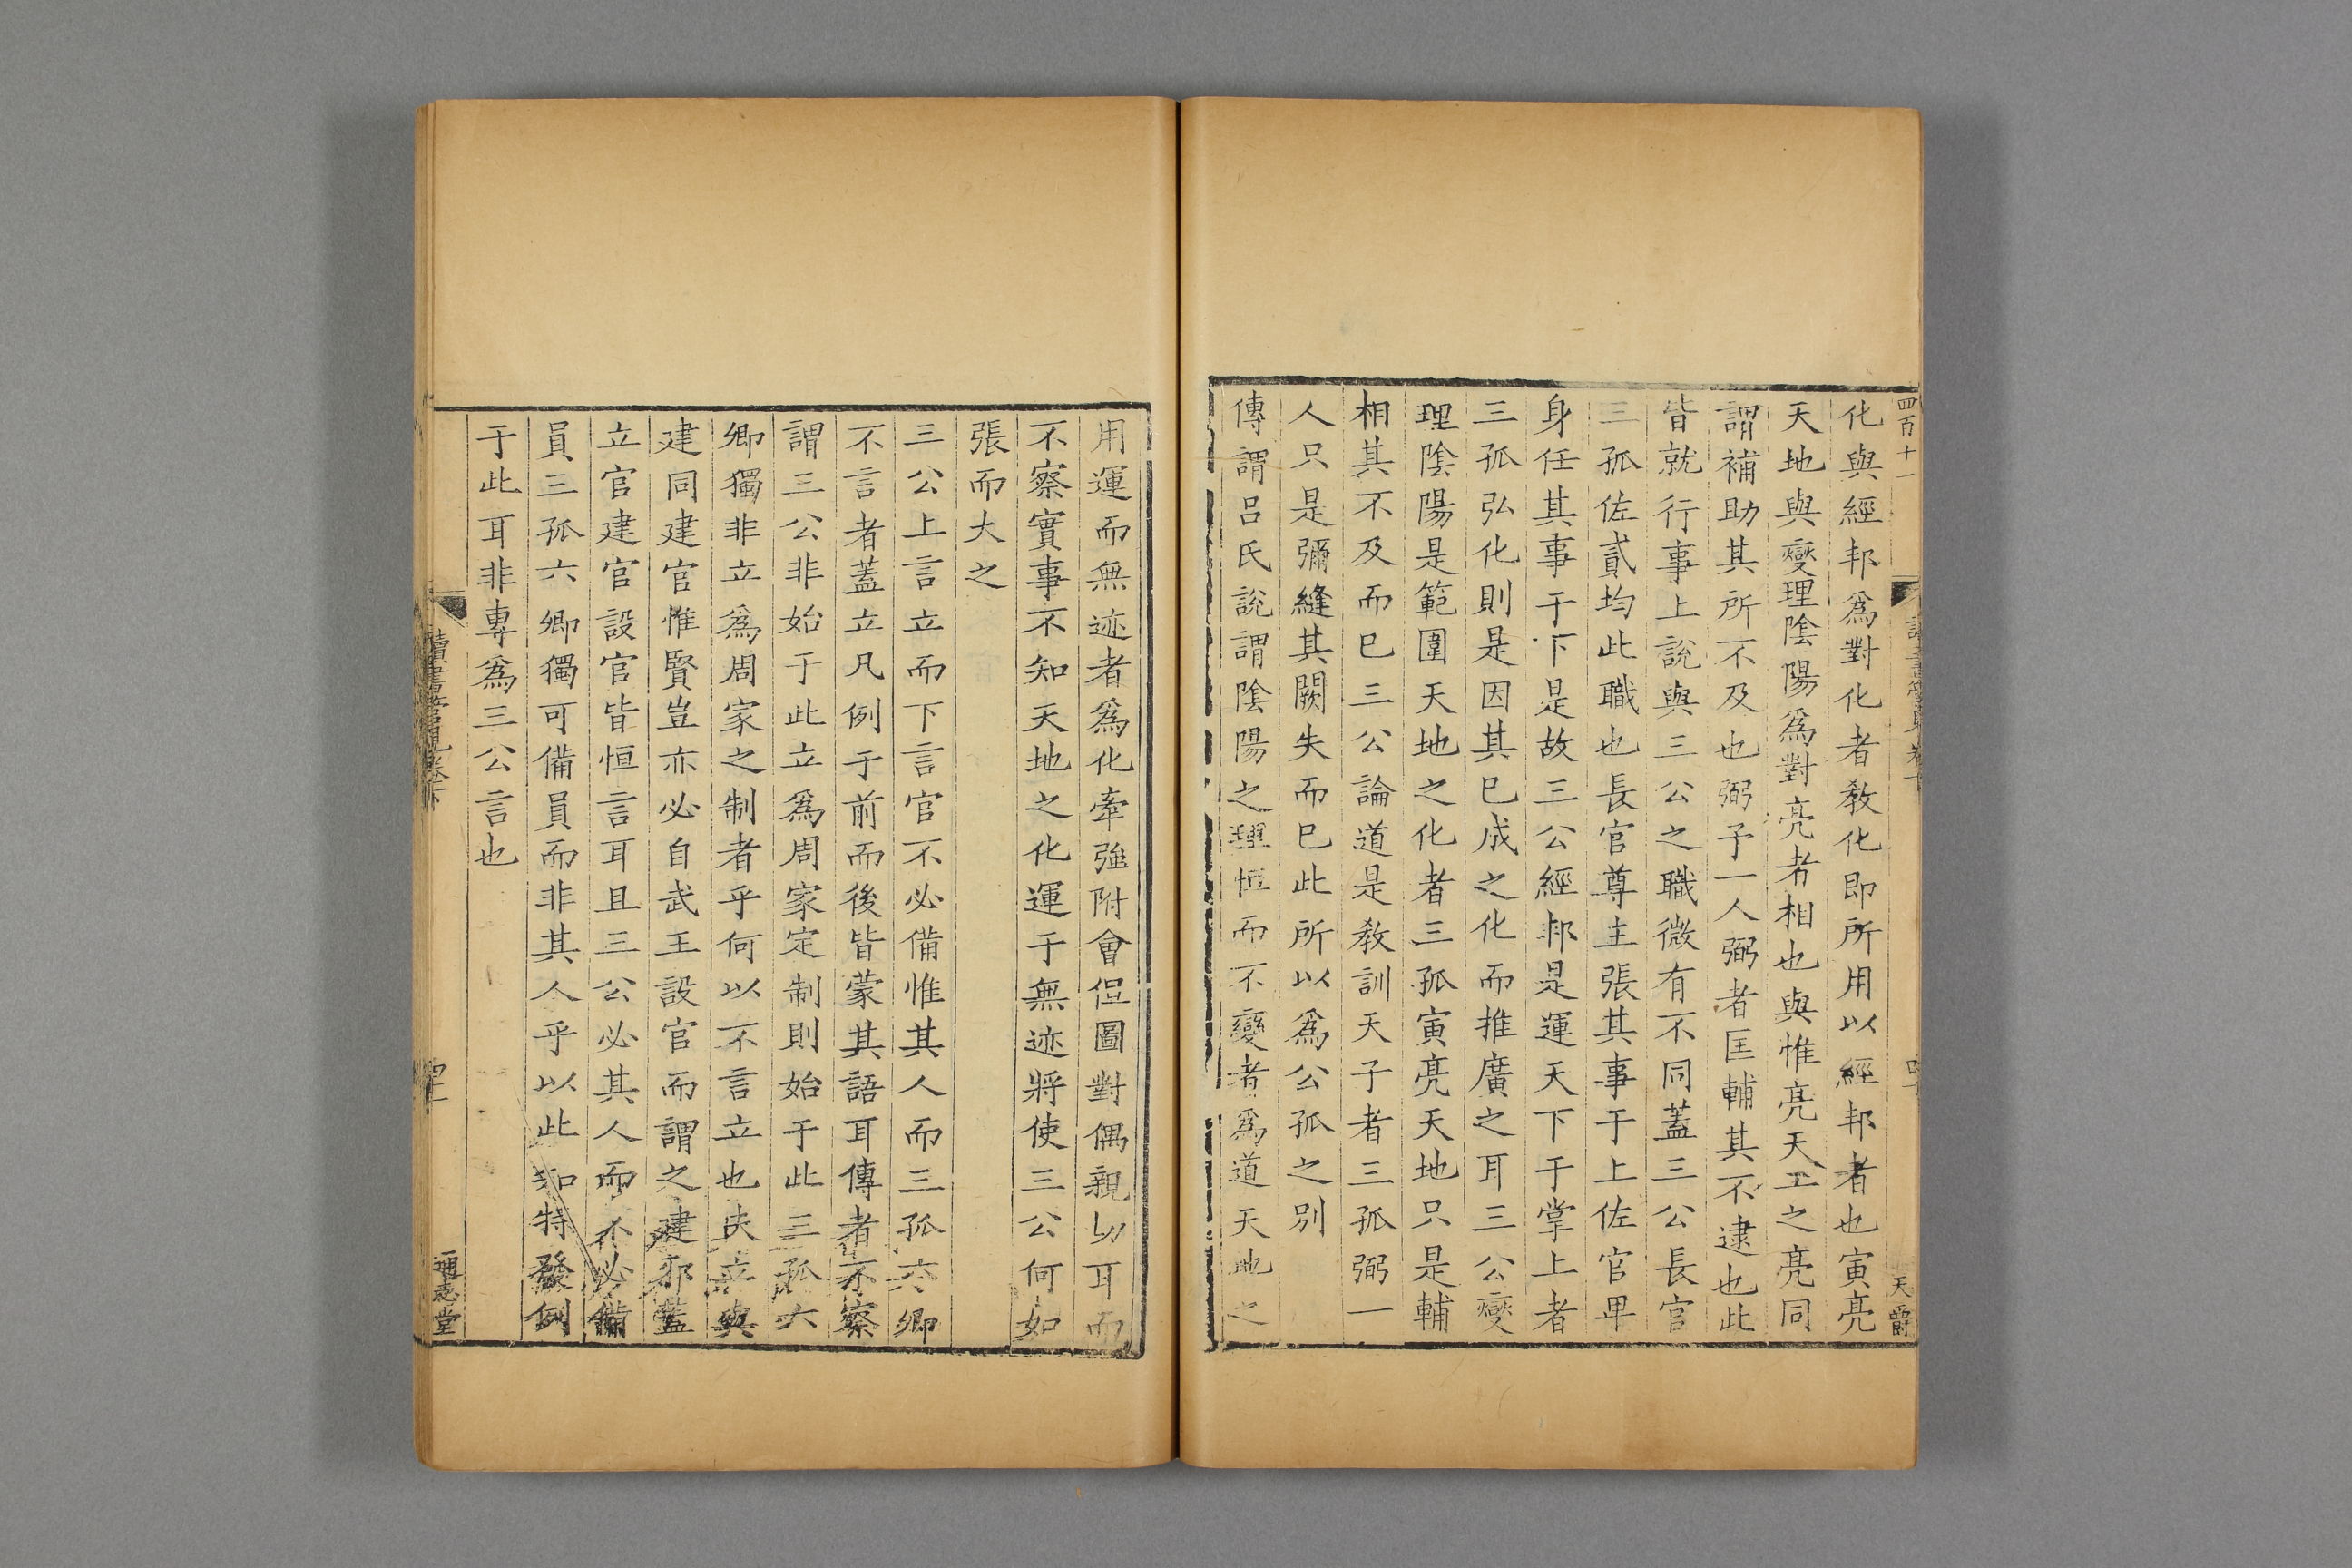 四百十一
天爵
化與經邦爲對化者教化即所用以經邦者也寅亮
天地與燮理陰陽爲對亮者相也與惟亮天工之亮同
謂補助其所不及也弼予一人弼者匡輔其不逮也此
皆就行事上說與三公之職微有不同蓋三公長官
三孤佐貳均此職也長官尊主張其事于上佐官卑
身任其事于下是故三公經邦是運天下于掌上者
三孤弘化則是因其已成之化而推廣之耳三公燮
理陰陽是範圍天地之化者三孤寅亮天地只是輔
相其不及而已三公論道是教訓天子者三孤弼一
人只是彌縫其闕失而已此所以爲公孤之別
傳謂呂氏說謂陰陽之理恒而不變者爲道天地之
用運而無迹者爲化牽強附會但圖對偶親切耳而
不察實事不知天地之化運于無迹將使三公何如
張而大之
三公上言立而下言官不必備惟其人而三孤六卿
不言者蓋立凡例于前而後皆蒙其語耳傳者不察
謂三公非始于此立爲周家定制則始于此三孤六
卿獨非立爲周家之制者乎何以不言立也夫立與
建同建官惟賢豈亦必自武王設官而謂之建邪蓋
立官建官設官皆恒言耳且三公必其人而不必備
員三孤六卿獨可備員而非其人乎以此知特發例
于此耳非專爲三公言也
讀書管見卷下
通志堂